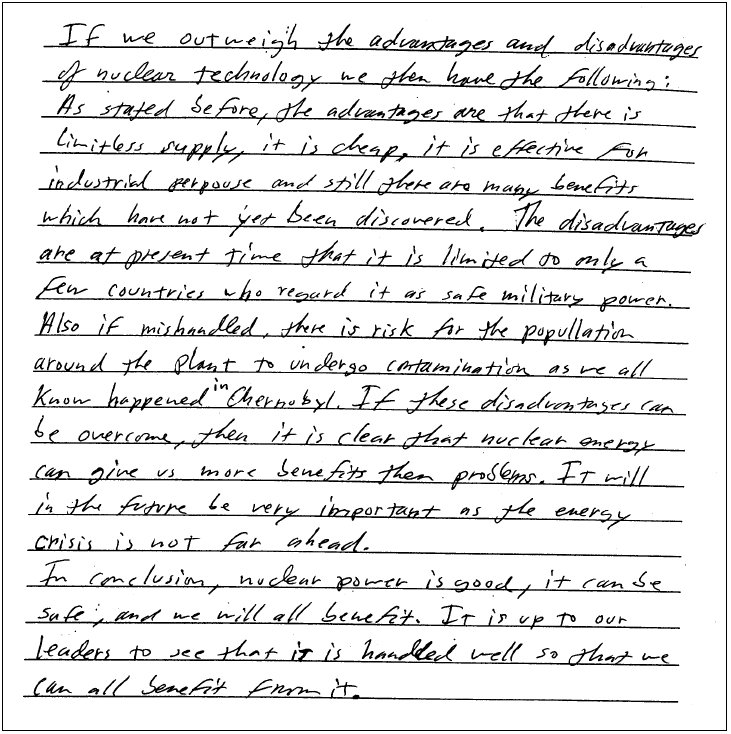 If we outweigh the advantages and disadvantages
of nuclear technology we then have the following:
As stated before, the advantages are that there is
limitless supply, it is cheap, it is effective for
industrial perpouse and still there are many benefits
which have not yet been discovered. The disadvantages
are at present time that it is limited to only a
few countries who regard it as safe military power.
Also if mishandled, there is risk for the popullation
around the plant to undergo contamination as we all
know happened in Chernobyl. If these disadvantages can
be overcome, then it is clear that nuclear energy
can give us more benefits then problems. It will
in the future be very important as the energy
crisis is not far ahead.
In conclusion, nuclear power is good, it can be
safe, and we will all benefit. It is up to our
leaders to see that it is handled well so that we
can all benefit from it.